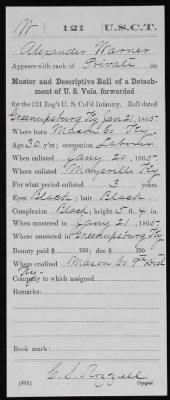 W 121 U.S.C.T.
Alexander Warner
Appears with rank of Private on
Muster and Descriptive Roll of a Detach-
ment of U. S. Vols. forwarded
for the 121 Reg't U. S. Col'd Infantry. Roll dated
Greenupsburg Ky Jan 21, 1865.
Where born Mason Co Ky.
Age 30 y'rs; occupation Laborer
When enlisted Jany 20, 1865.
Where enlisted Maysville Ky
For what period enlisted 3 years.
Eyes Black; hair Black
Complexion Black; height 5 ft. 4 in.
When mustered in Jany 21, 1865.
Where mustered in Greenupsburg Ky
Bounty paid $ 100; due $ 100
Where credited Mason Co 9th Dist
Ky.
Company to which assigned
Remarks:
Book mark:
(369) Copyist.